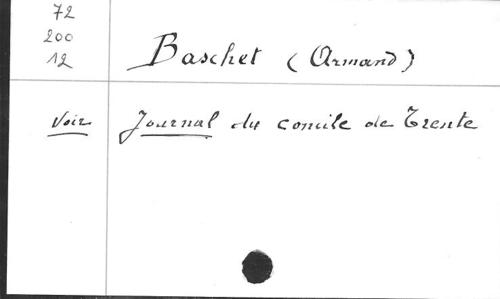 72
200
12
Baschet (Armand)
Voir Journal du concile de Trente